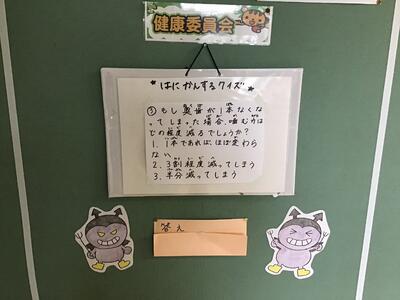 健康委員会
★はにかんするクイズ★
③もし奥歯が1本なくな
ってしまった場合、噛む力は
どの程度減るでしょうか?
1. 1本であれば、ほぼ変わら
ない
2. 3割程度減ってしまう
3. 半分減ってしまう
答え